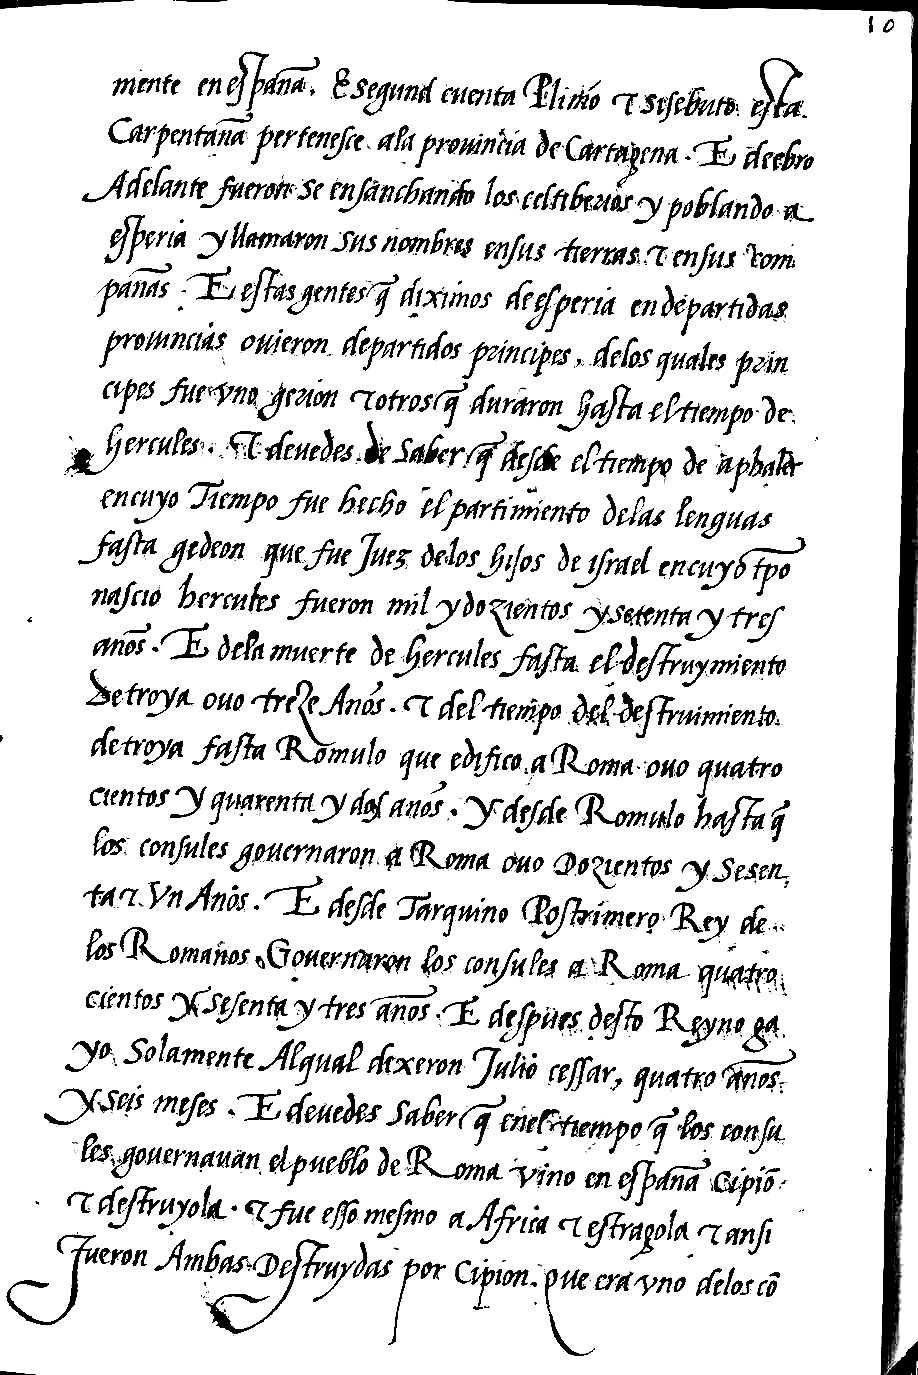 10
mente en españa. E segund cuenta Plinio τ sesebuto esta
Carpentaña pertenesce ala prouinçia de Cartagena. E deebro
Adelante fueron se ensanchando los celtiberios y poblando a
esperia y llamaron sus nombres ensus tierras τ ensus com
pañas. E estas gentes q̃ diximos de esperia en departidas
prouincias ouieron departidos principes, delos quales prin
cipes fue vno gerion τ otros q̃ duraron hasta el tiempo de
hercules. τ deuedes de saber q̃ desde el tiempo de aphalet
encuyo Tiempo fue hecho el partimiento delas lenguas
fasta gedeon que fue Juez delos hijos de israel encuyo tp̃o
nascio hercules fueron mil y dozientos y setenta y tres
años. E dela muerte de hercules fasta el destruymiento
De troya ouo treze Años. τ del tiempo del destruimiento
de troya fasta Romulo que edifico a Roma ouo quatro
cientos y quarenta y dos años. y desde Romulo hasta q̃
los consules gouernaron a Roma ouo Dozientos y Sesen,
ta τ Vn Años. E desde Tarquino Postrimero Rey de
los Romanos Gouernaron los consules a Roma quatro
cientos y sesenta y tres años. E despues desto Reyno ga
yo Solamente Alqual dexeron Julio cessar, quatro años
y seis meses. E deuedes saber q̃ enel tiempo q̃ los consu
les gouernauan el pueblo de Roma vino en españa Cipiõ
τ destruyola. τ fue esso mesmo a Africa τ estragola τ ansi
fueron Ambas Destruydas por Cipion. que era vno delos cõ